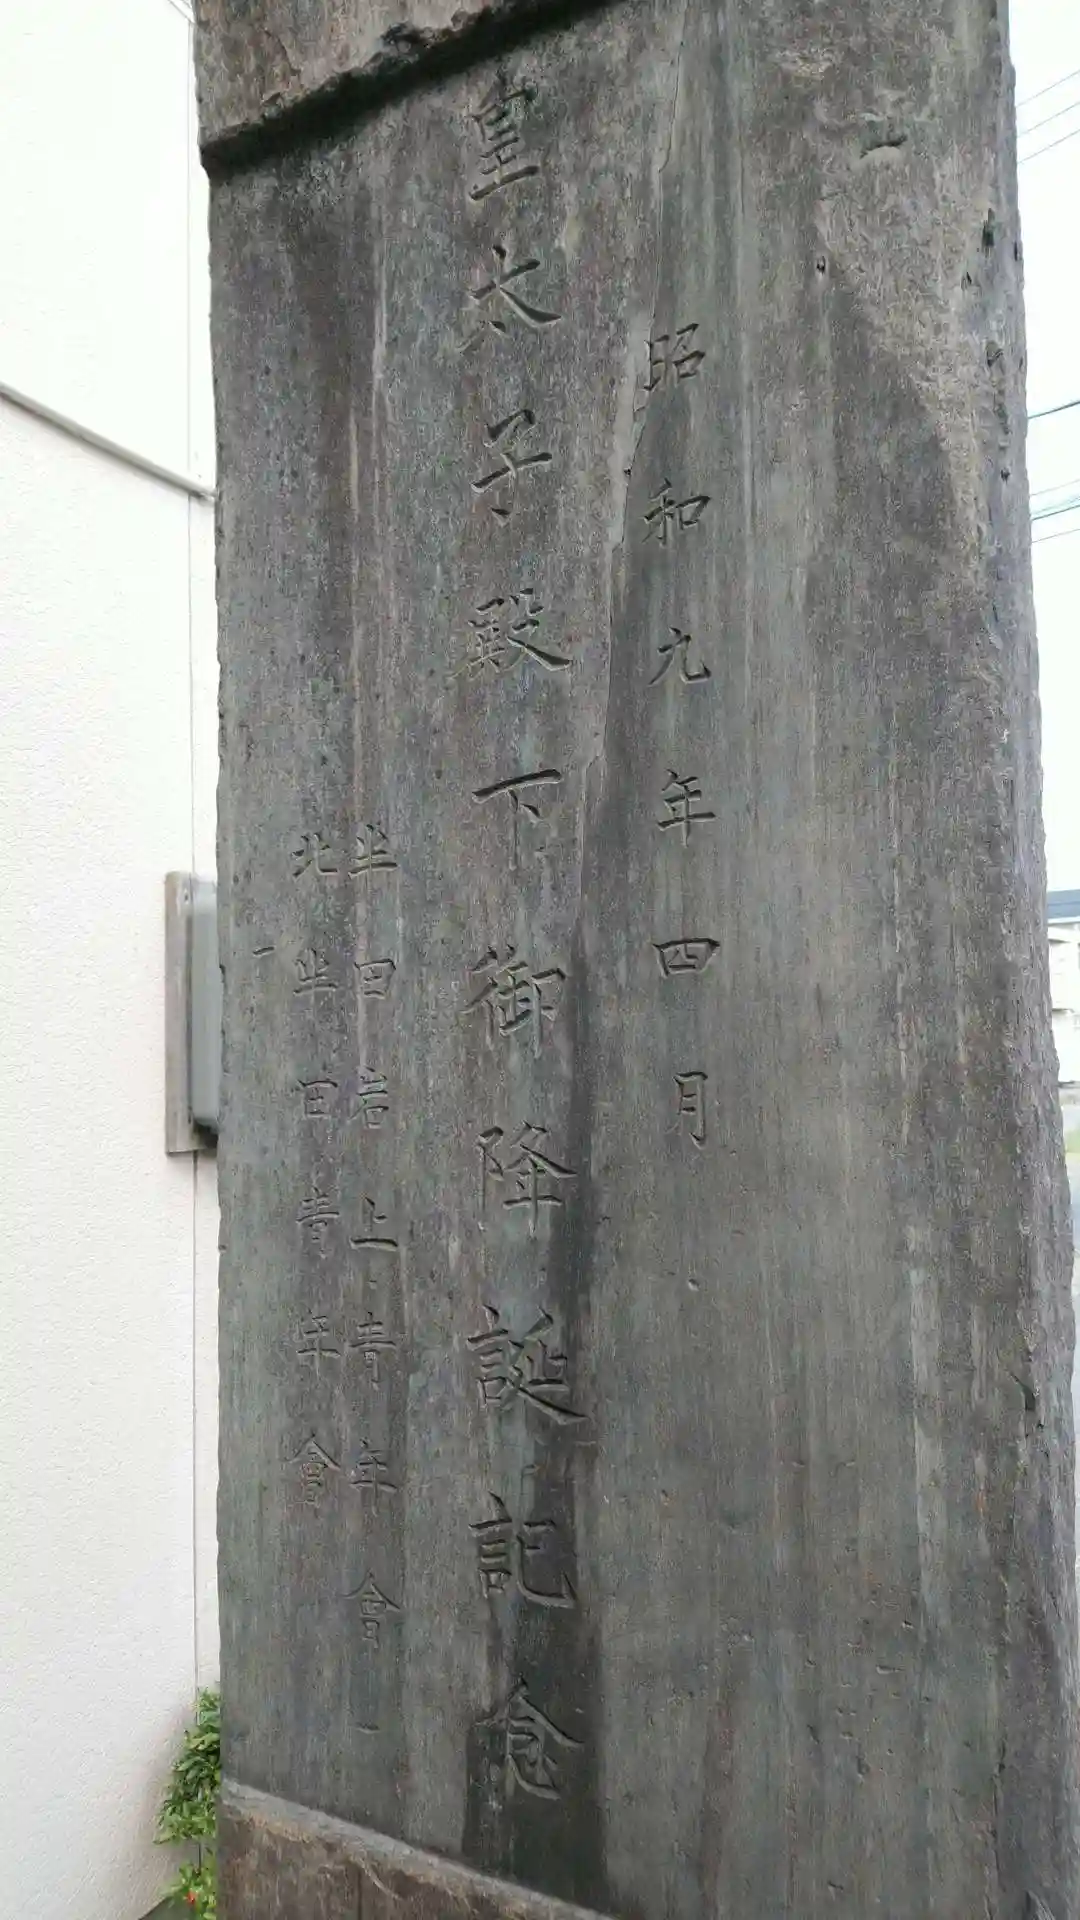 昭和九年四月
皇太子殿下御降誕記念
半田岩上青年會
北半田青年會